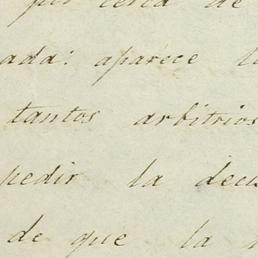 por cerca de
ada: aparece l
tantos arbitrios
pedir la deci
de que la